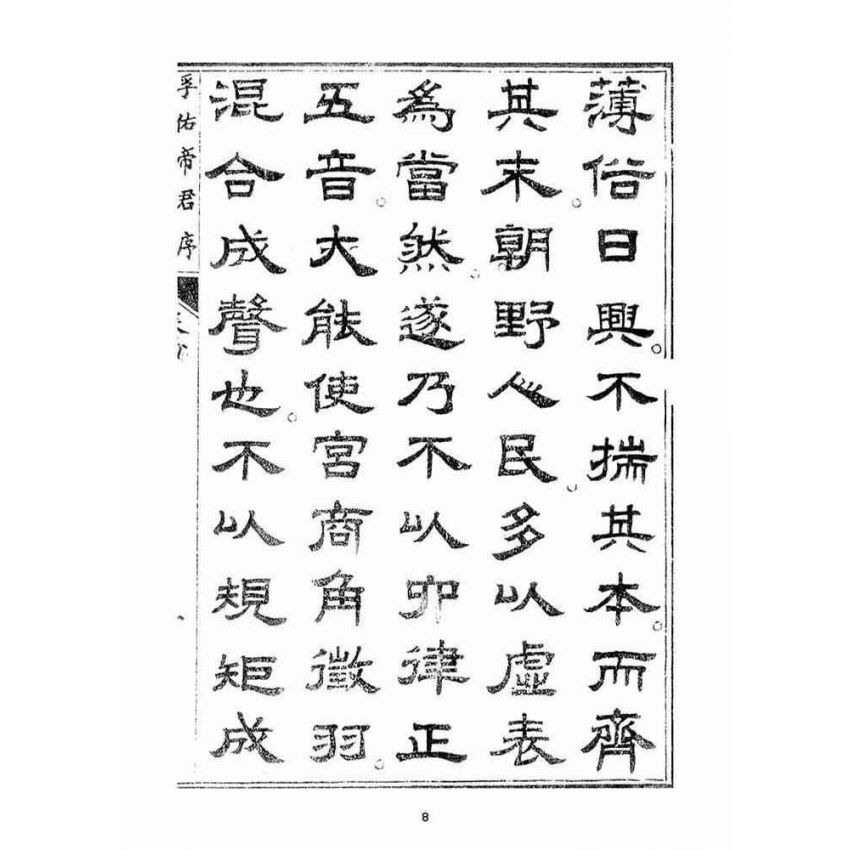 薄俗日興不揣其本而齊
其末朝野人民多以虛表
爲當然遂乃不以卯律正
五音大能使宮商角徵羽
混合成聲也不以規矩成
孚佑帝君序
8